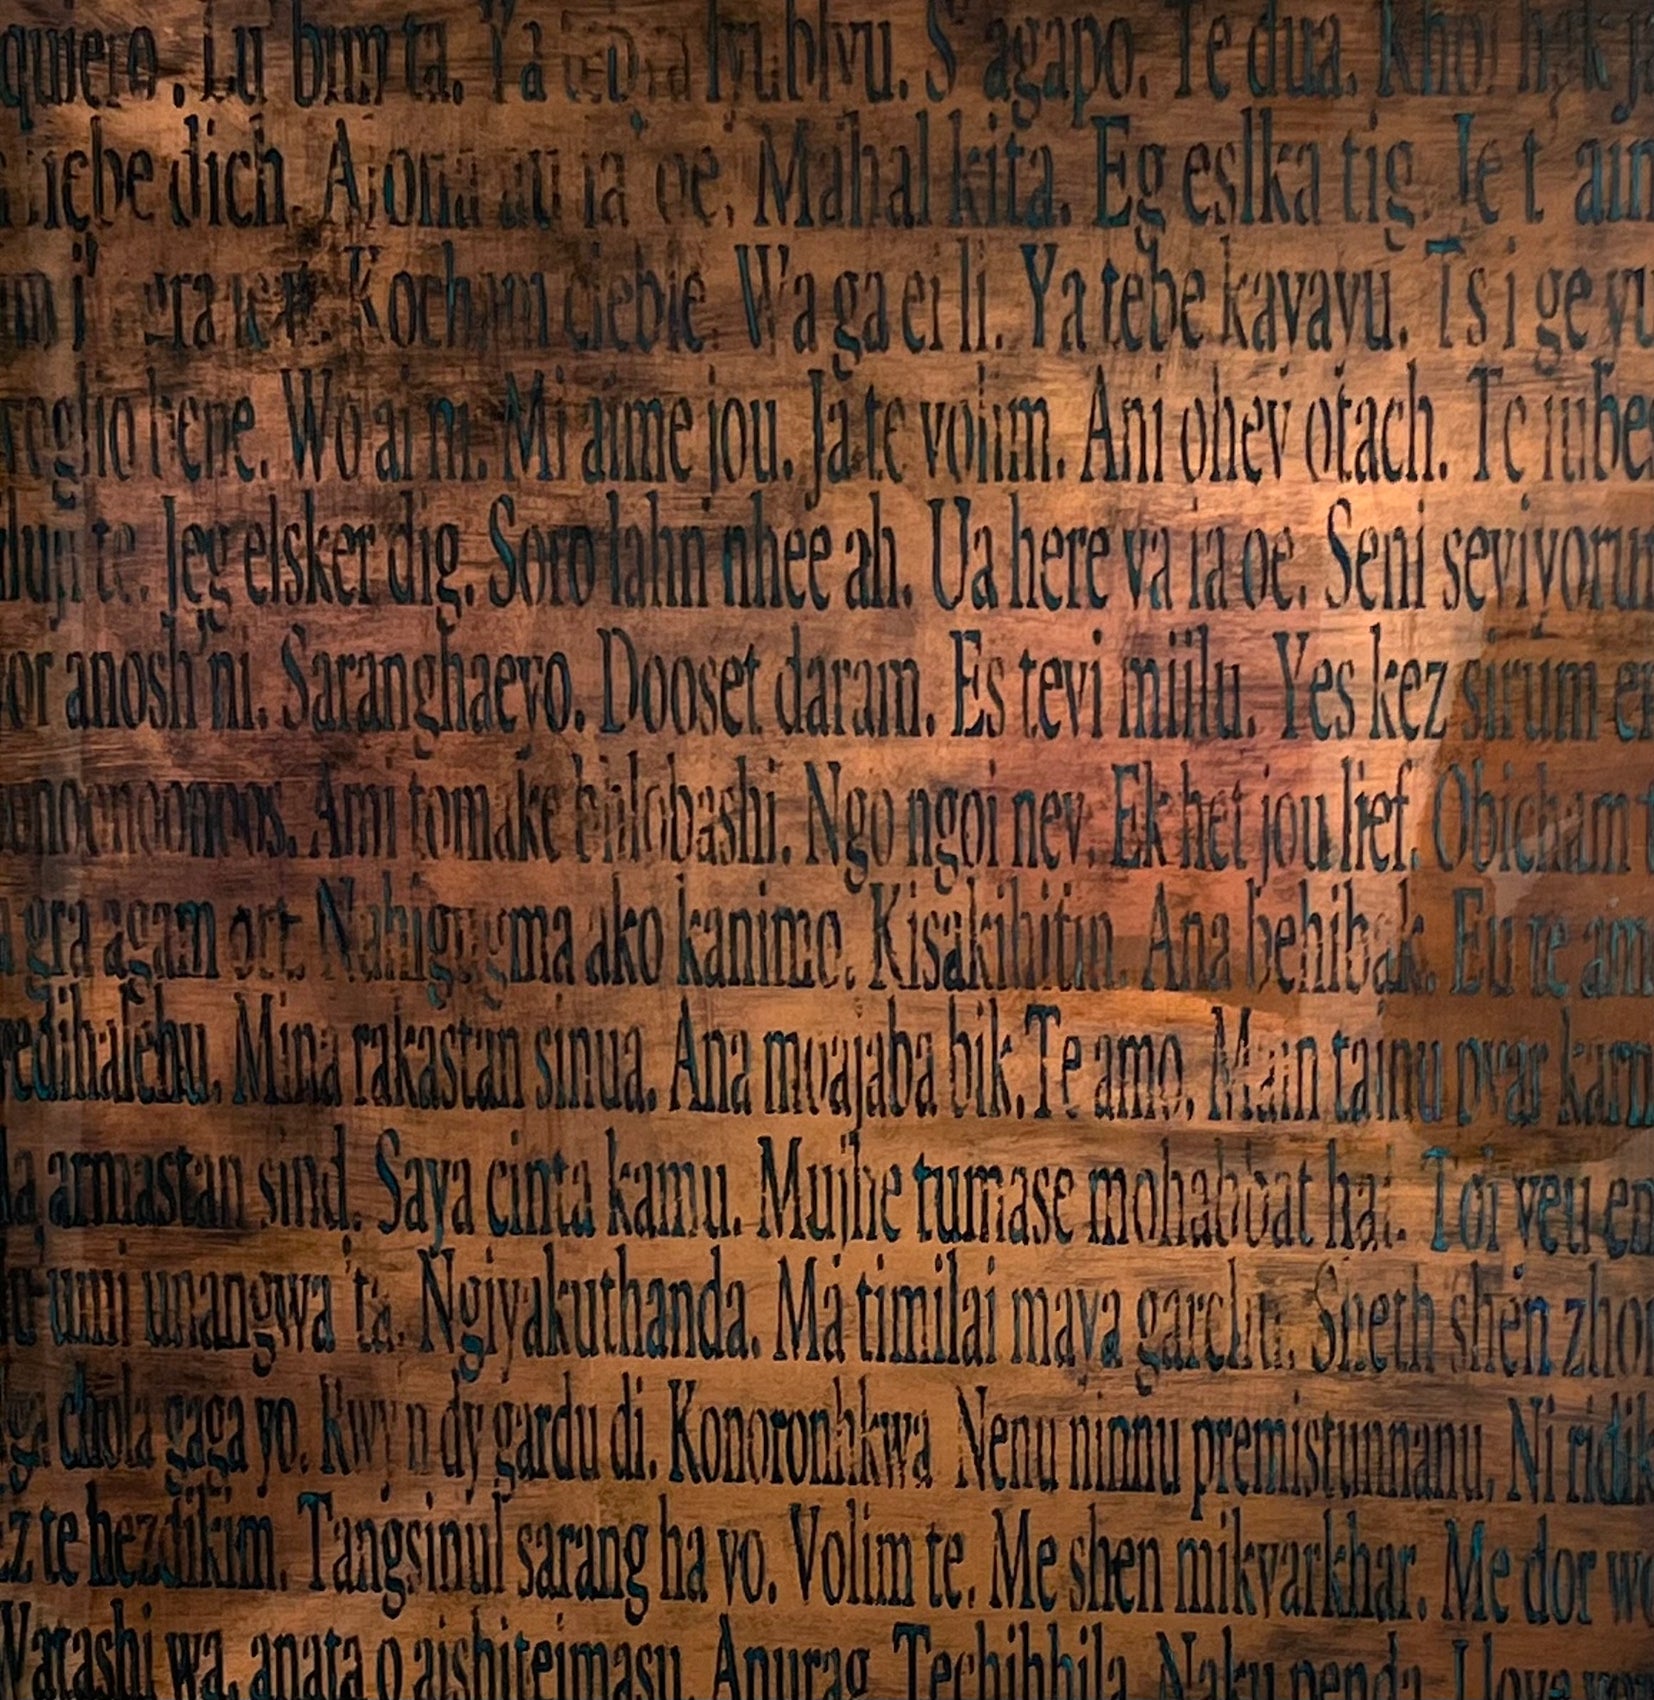 quiero. Lu bim ta. Ya tebya lyublyu. S'agapo. Te dua. Khoi
liebe dich. Aloha au ia 'oe. Mahal kita. Eg eslka tig. Je t'aim
gra Kocham ciebie. Wa ga ei li. Ya tebe kavayu. Ts i ge yu
voglio bene. Wo ai ni. Mi aime jou. Ja te volim. Ani ohev otach. Te iubes
te. Jeg elsker dig. Soro lahn nhee ah. Ua here va ia oe. Seni seviyorum
or anosh'ni. Saranghaeyo. Dooset daram. Es tevi miilu. Yes kez sirum em
Ami tomake bhlobashi. Ngo ngoi ney. Ek het jou lief. Obicham t
gra agam ort. Nahigugma ako kanimo. Kisakihitin. Ana behibak. Eu te am
redihalehu. Mina rakastan sinua. Ana moajaba bik. Te amo. Main tainu pyar karn
Ma armastan sind. Saya cinta kamu. Mujhe tumase mohabbat hai. Toi yeu em
u' umi unangwa 'ta. Ngiyakuthanda. Ma timilai maya garchu. Sheth shen zhon
ga chola gaga yo. Rwy'n dy gardu di. Konoronhkwa. Nenu ninnu premistunnanu. Ni ridik
ez te hezdikim. Tangsinul sarang ha yo. Volim te. Me shen mikvarkhar. Me dor wo
Watashi wa, anata o aishiteimasu. Anurag. Techihhila. Naku penda. I love you